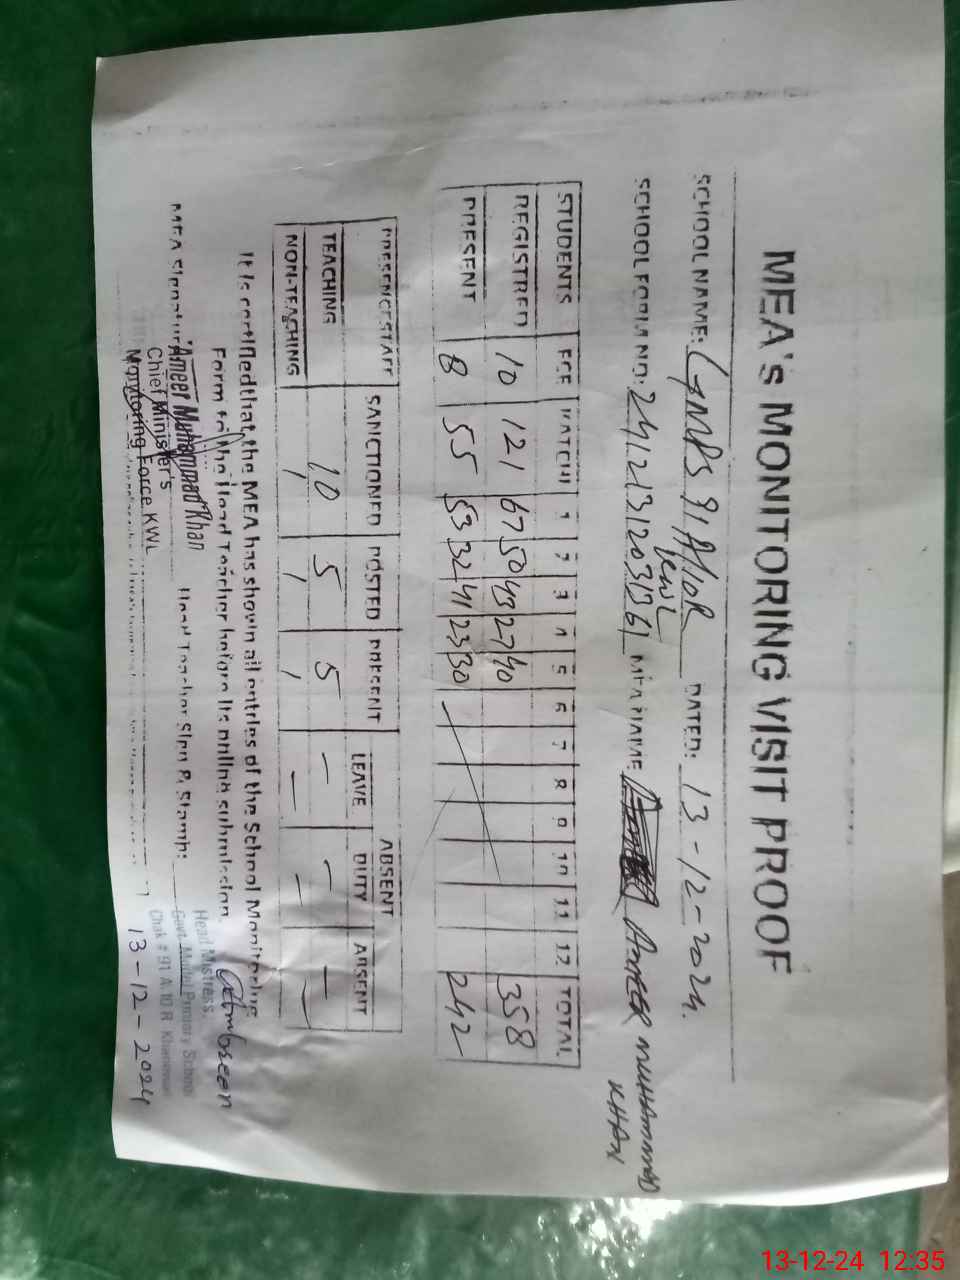 MEA's MONITORING VISIT PROOF
SCHOOL NAME: GMPS 91 A/10R KWL DATED: 13-12-2024.
SCHOOL FORM NO: MEA NAME: AMEER MUHAMMAD KHAN
STUDENTS ECE KATCHI 1 2 3 4 5 6 7 8 9 10 11 12 TOTAL
REGISTRED 10 121 67 50 43 27 40 358
PRESENT 8 55 53 32 41 23 30 242
PRESENCE STAFF SANCTIONED POSTED PRESENT ABSENT
LEAVE DUTY ABSENT
TEACHING 10 5 5 - - -
NON-TEACHING 1 1 1 - - -
It is certified that the MEA has shown all entries of the School Monitoring
Form to the Head Teacher before its online submission.
MEA Signature: Head Teacher Sign & Stamp:
Ameer Muhammad Khan
Chief Minister's
Monitoring Force KWL
Ambreen
Head Mistress.
Govt. Model Primary School
Chak # 91 A.10 R Khanewal
13-12-2024
13-12-24 12:35